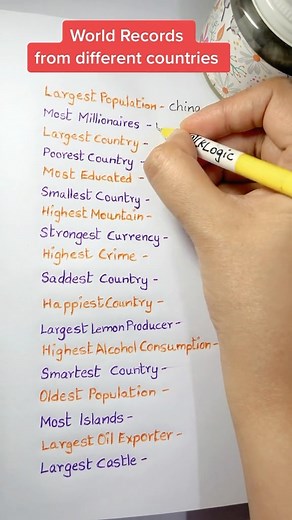 World Records
from different countries
Largest Population - China
Most Millionaires -
Largest Country -
Poorest Country -
Most Educated -
Smallest Country -
Highest Mountain -
Strongest Currency -
Highest Crime -
Saddest Country -
Happiest Country -
Largest Lemon Producer -
Highest Alcohol Consumption -
Smartest Country -
Oldest Population -
Most Islands -
Largest Oil Exporter -
Largest Castle -